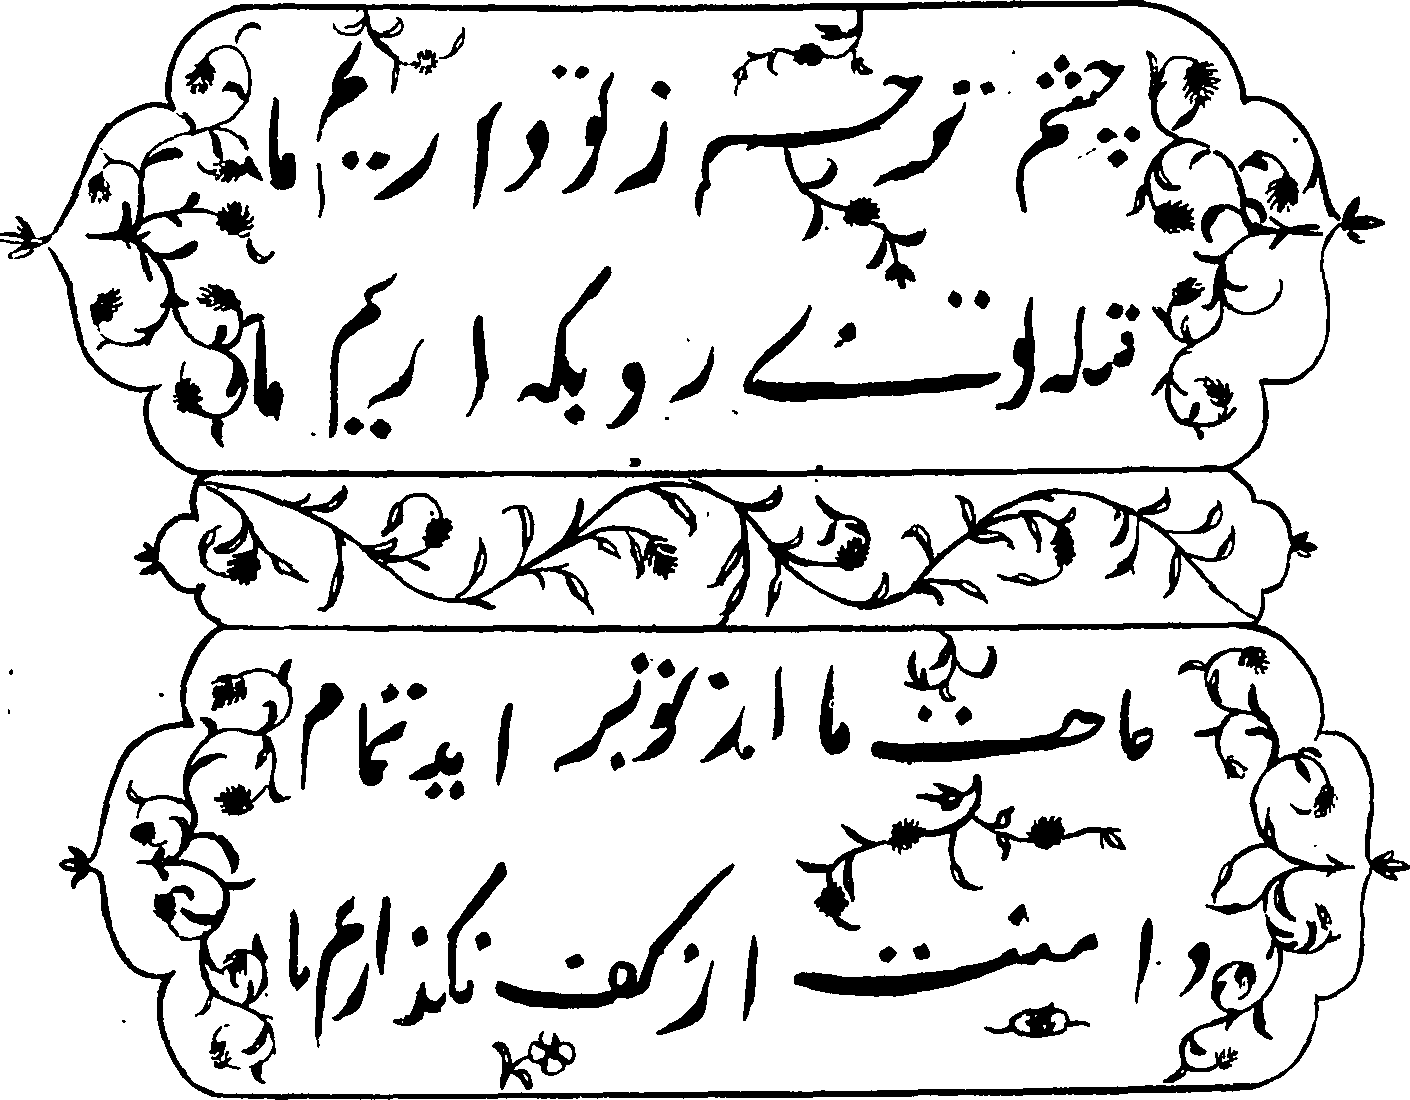 چشم ترحم ز تو داریم ما
قبله توئے رو بکه اریم ما
حاجت ما از تو بر اید تمام
دامنت از کف نگذاریم ما